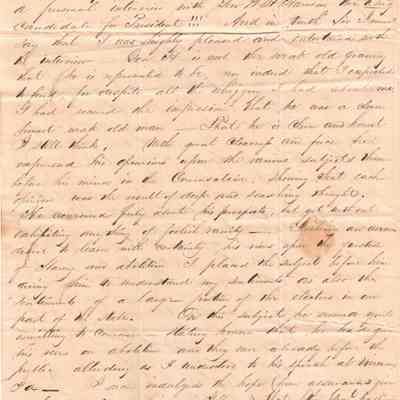 a personal interview with Gen W H Harrison the Whig
Candidate for President!!! And in truth Sir I must
say that I was highly pleased and entertained with
the interview Gen H is not the weak old granny
that he is represented to be, nor indeed that I expected
to find for despite all the Whiggism I had about me
I had the impression that he was a
weak old man — That he is and honest
I still think, With great clearness and force he
expressed his opinions upon the various subjects then
before his mind in the Conversation, showing that each
opinion was the result of deep and searching thought.
He conversed freely about his prospects, but yet without
exhibiting any thing of foolish vanity — Feeling an
desire to learn with certainty his views upon the question
of Slavery and abolition I placed the subject before him
giving him to understand my sentiments as also the
sentiments of a large portion of the electors in our
part of the State. On this subject, he seemed quite
willing to converse stating however that he had given
his views on abolition and they are already before the
public alluding as I understood to his speech at Vincennes
Ia — I now indulge the hope from assurances given